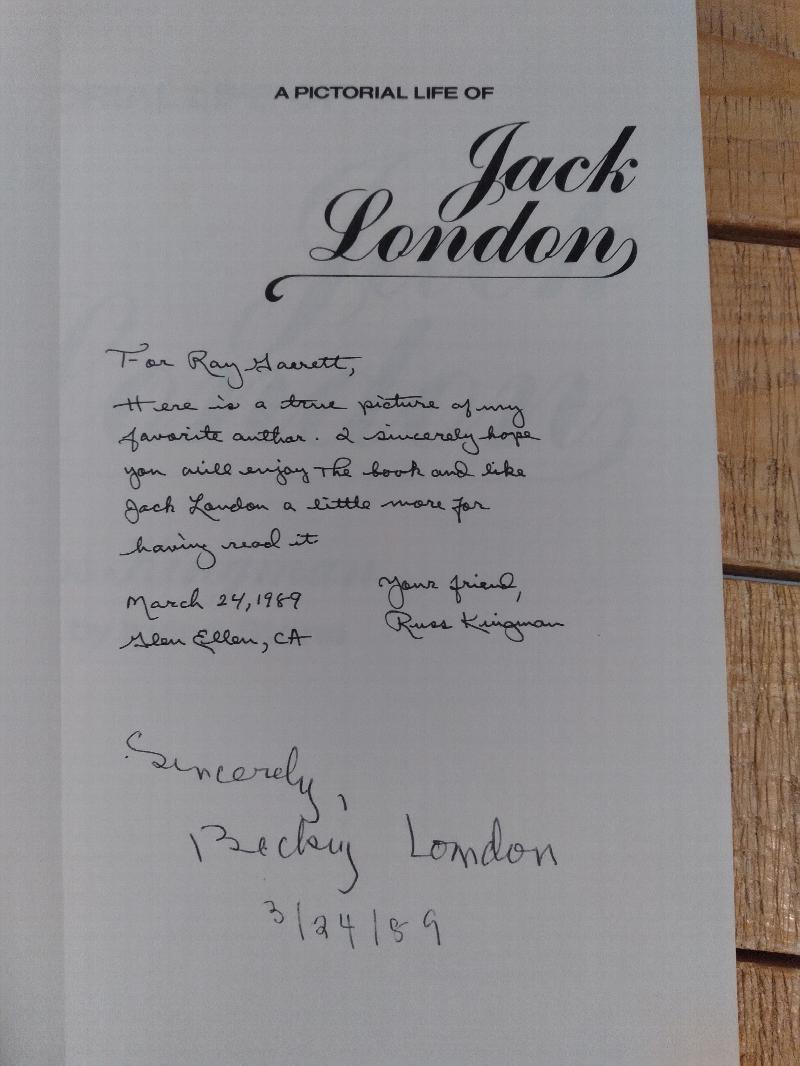 A PICTORIAL LIFE OF
Jack
London
For Ray Garrett,
Here is a true picture of my
favorite author. I sincerely hope
you will enjoy the book and like
Jack London a little more for
having read it.
Your friend,
March 24, 1989
Russ Kingman
Glen Ellen, CA
Sincerely,
Becky London
3/24/89